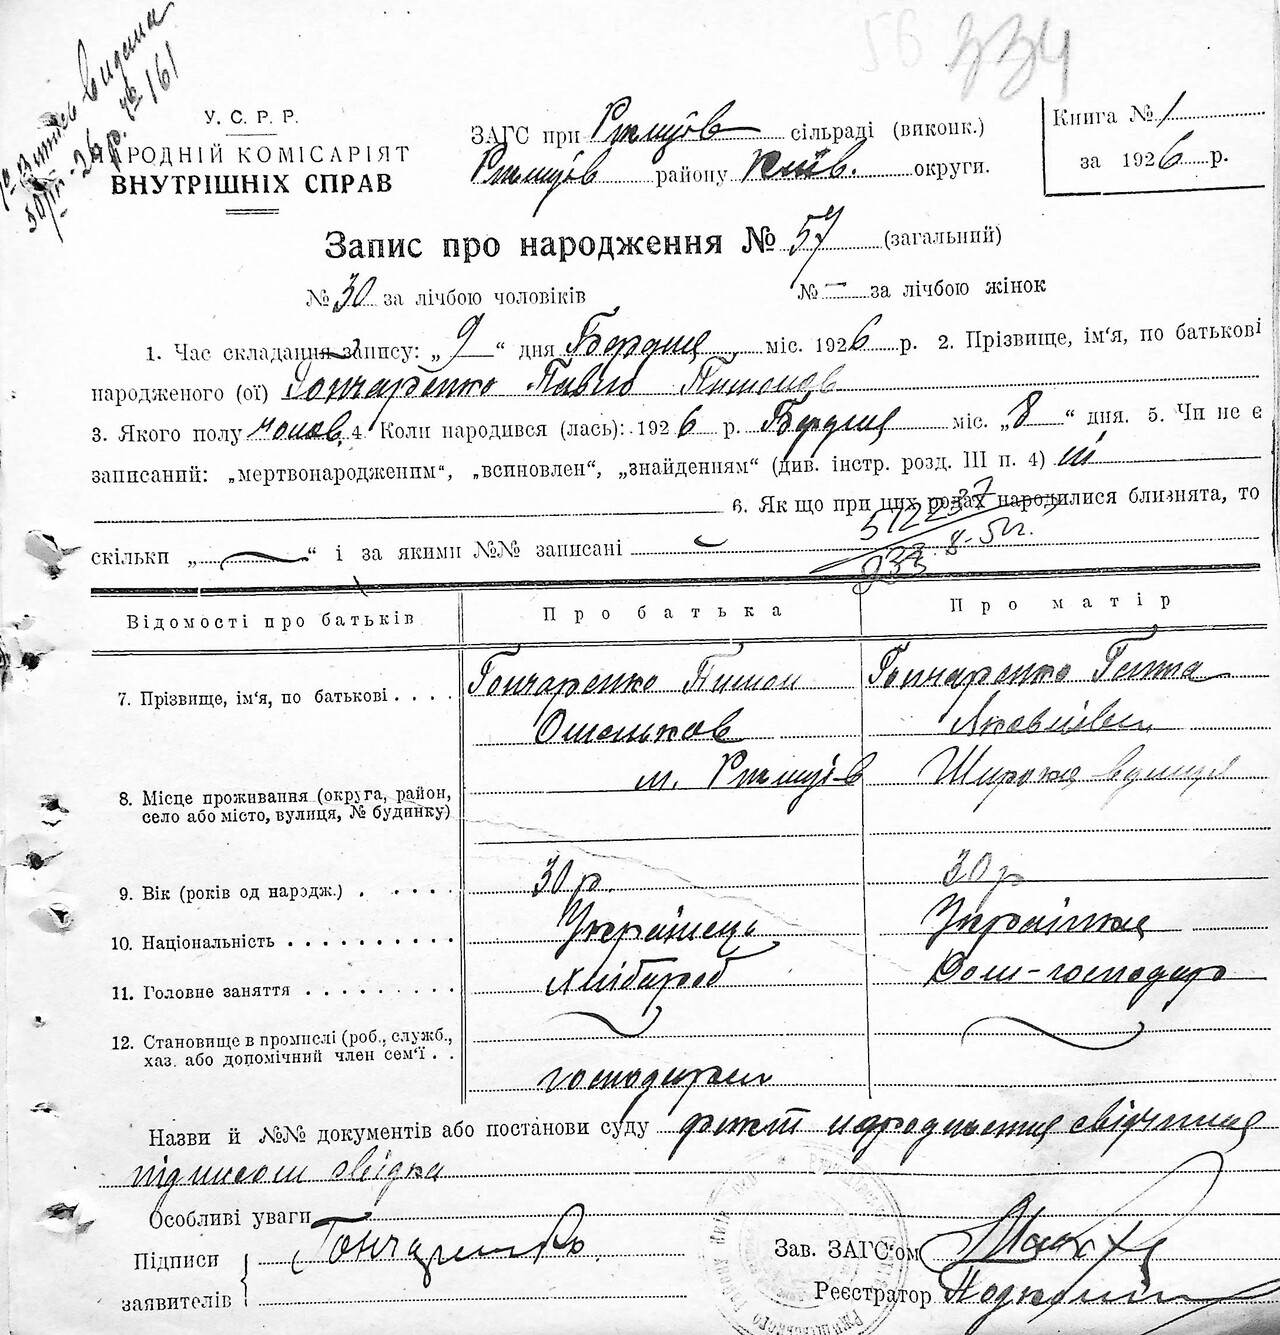 334
Витпсь видана
№ 161
У. С. Р. Р.
НАРОДНІЙ КОМІСАРІЯТ
ВНУТРІШНІХ СПРАВ
ЗАГС при Ржищів сільраді (виконк.)
Ржищів району Київ. округи.
Книга № 1
за 1926 р.
Запис про народження № 57 (загальний)
№ 30 за лічбою чоловіків № — за лічбою жінок
1. Час складання запису: „ 9 “ дня Берзня міс. 1926 р. 2. Прізвище, ім'я, по батькові
народженого (ої) Гончаренко Павло Пимонов
3. Якого полу чолов. 4. Коли народився (лась): 1926 р. Берзня міс. „8“ дня. 5. Чи не є
записаний: „мертвонародженим“, „всиновлен“, „знайденням“ (див. інстр. розд. III п. 4) ні
6. Як що при цих родах народилися близнята, то
скільки „ — “ і за якими №№ записані —
Відомості про батьків Про батька Про матір
7. Прізвище, ім'я, по батькові . . . . Гончаренко Пимон Гончаренко
Омельков Яковлівна
м. Ржищів Широка вулиця
8. Місце проживання (округа, район,
село або місто, вулиця, № будинку)
9. Вік (років од народж.) . . . . . 30 р. 30 р
10. Національність . . . . . . . . . . Українець Українка
11. Головне заняття . . . . . . . . . Хлібороб Дом-господар
12. Становище в промислі (роб., служб.,
хаз. або допомічний член сем'ї . .
господарем
Назви й №№ документів або постанови суду факт народження свідчиния
підписом свідка
Особливі уваги
Підписи Гончаренко
заявителів
Зав. ЗАГС'ом
Реєстратор